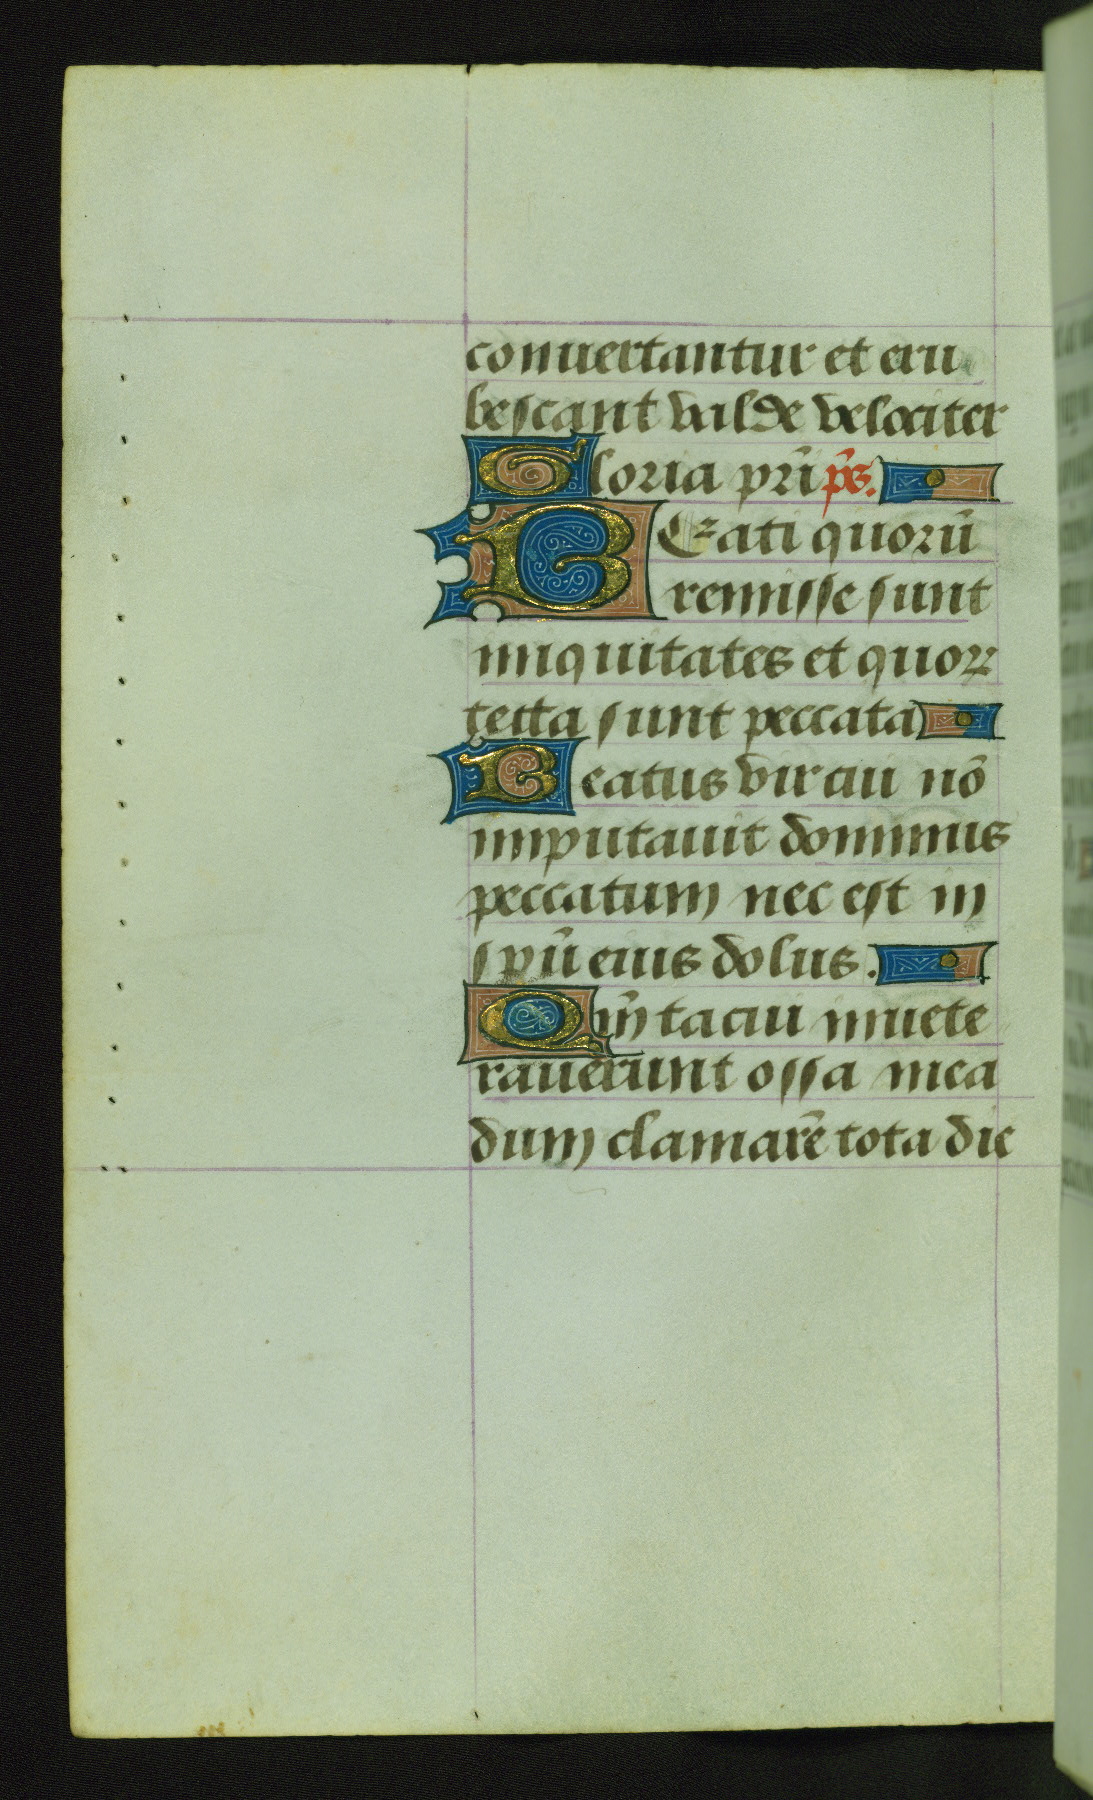 conuertantur et eru
bescant valde velociter
Gloria pr̃i ps̃.
BEati quorũ
remisse sunt
iniquitates et quoꝝ
tecta sunt peccata
Beatus vir cui nõ
imputauit dominus
peccatum nec est in
spũ eius dolus.
Qm̃ tacui inuete
rauerunt ossa mea
dum clamarẽ tota die